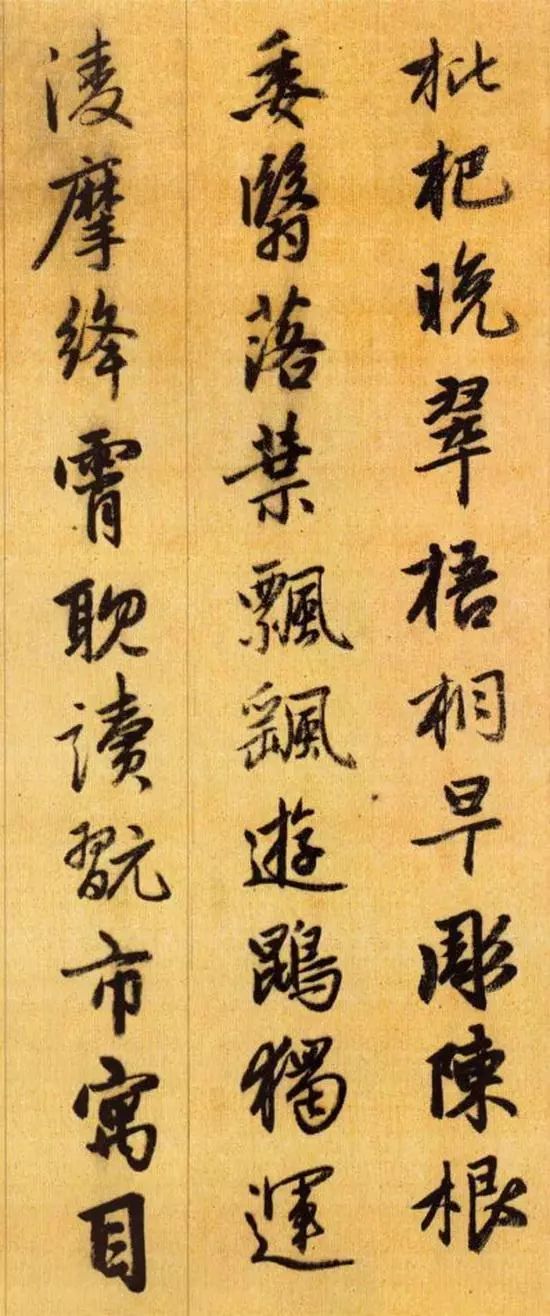 枇杷晚翠梧桐早彫陳根
委翳落葉飄颻遊鵾獨運
淩摩絳霄耽讀翫市寓目